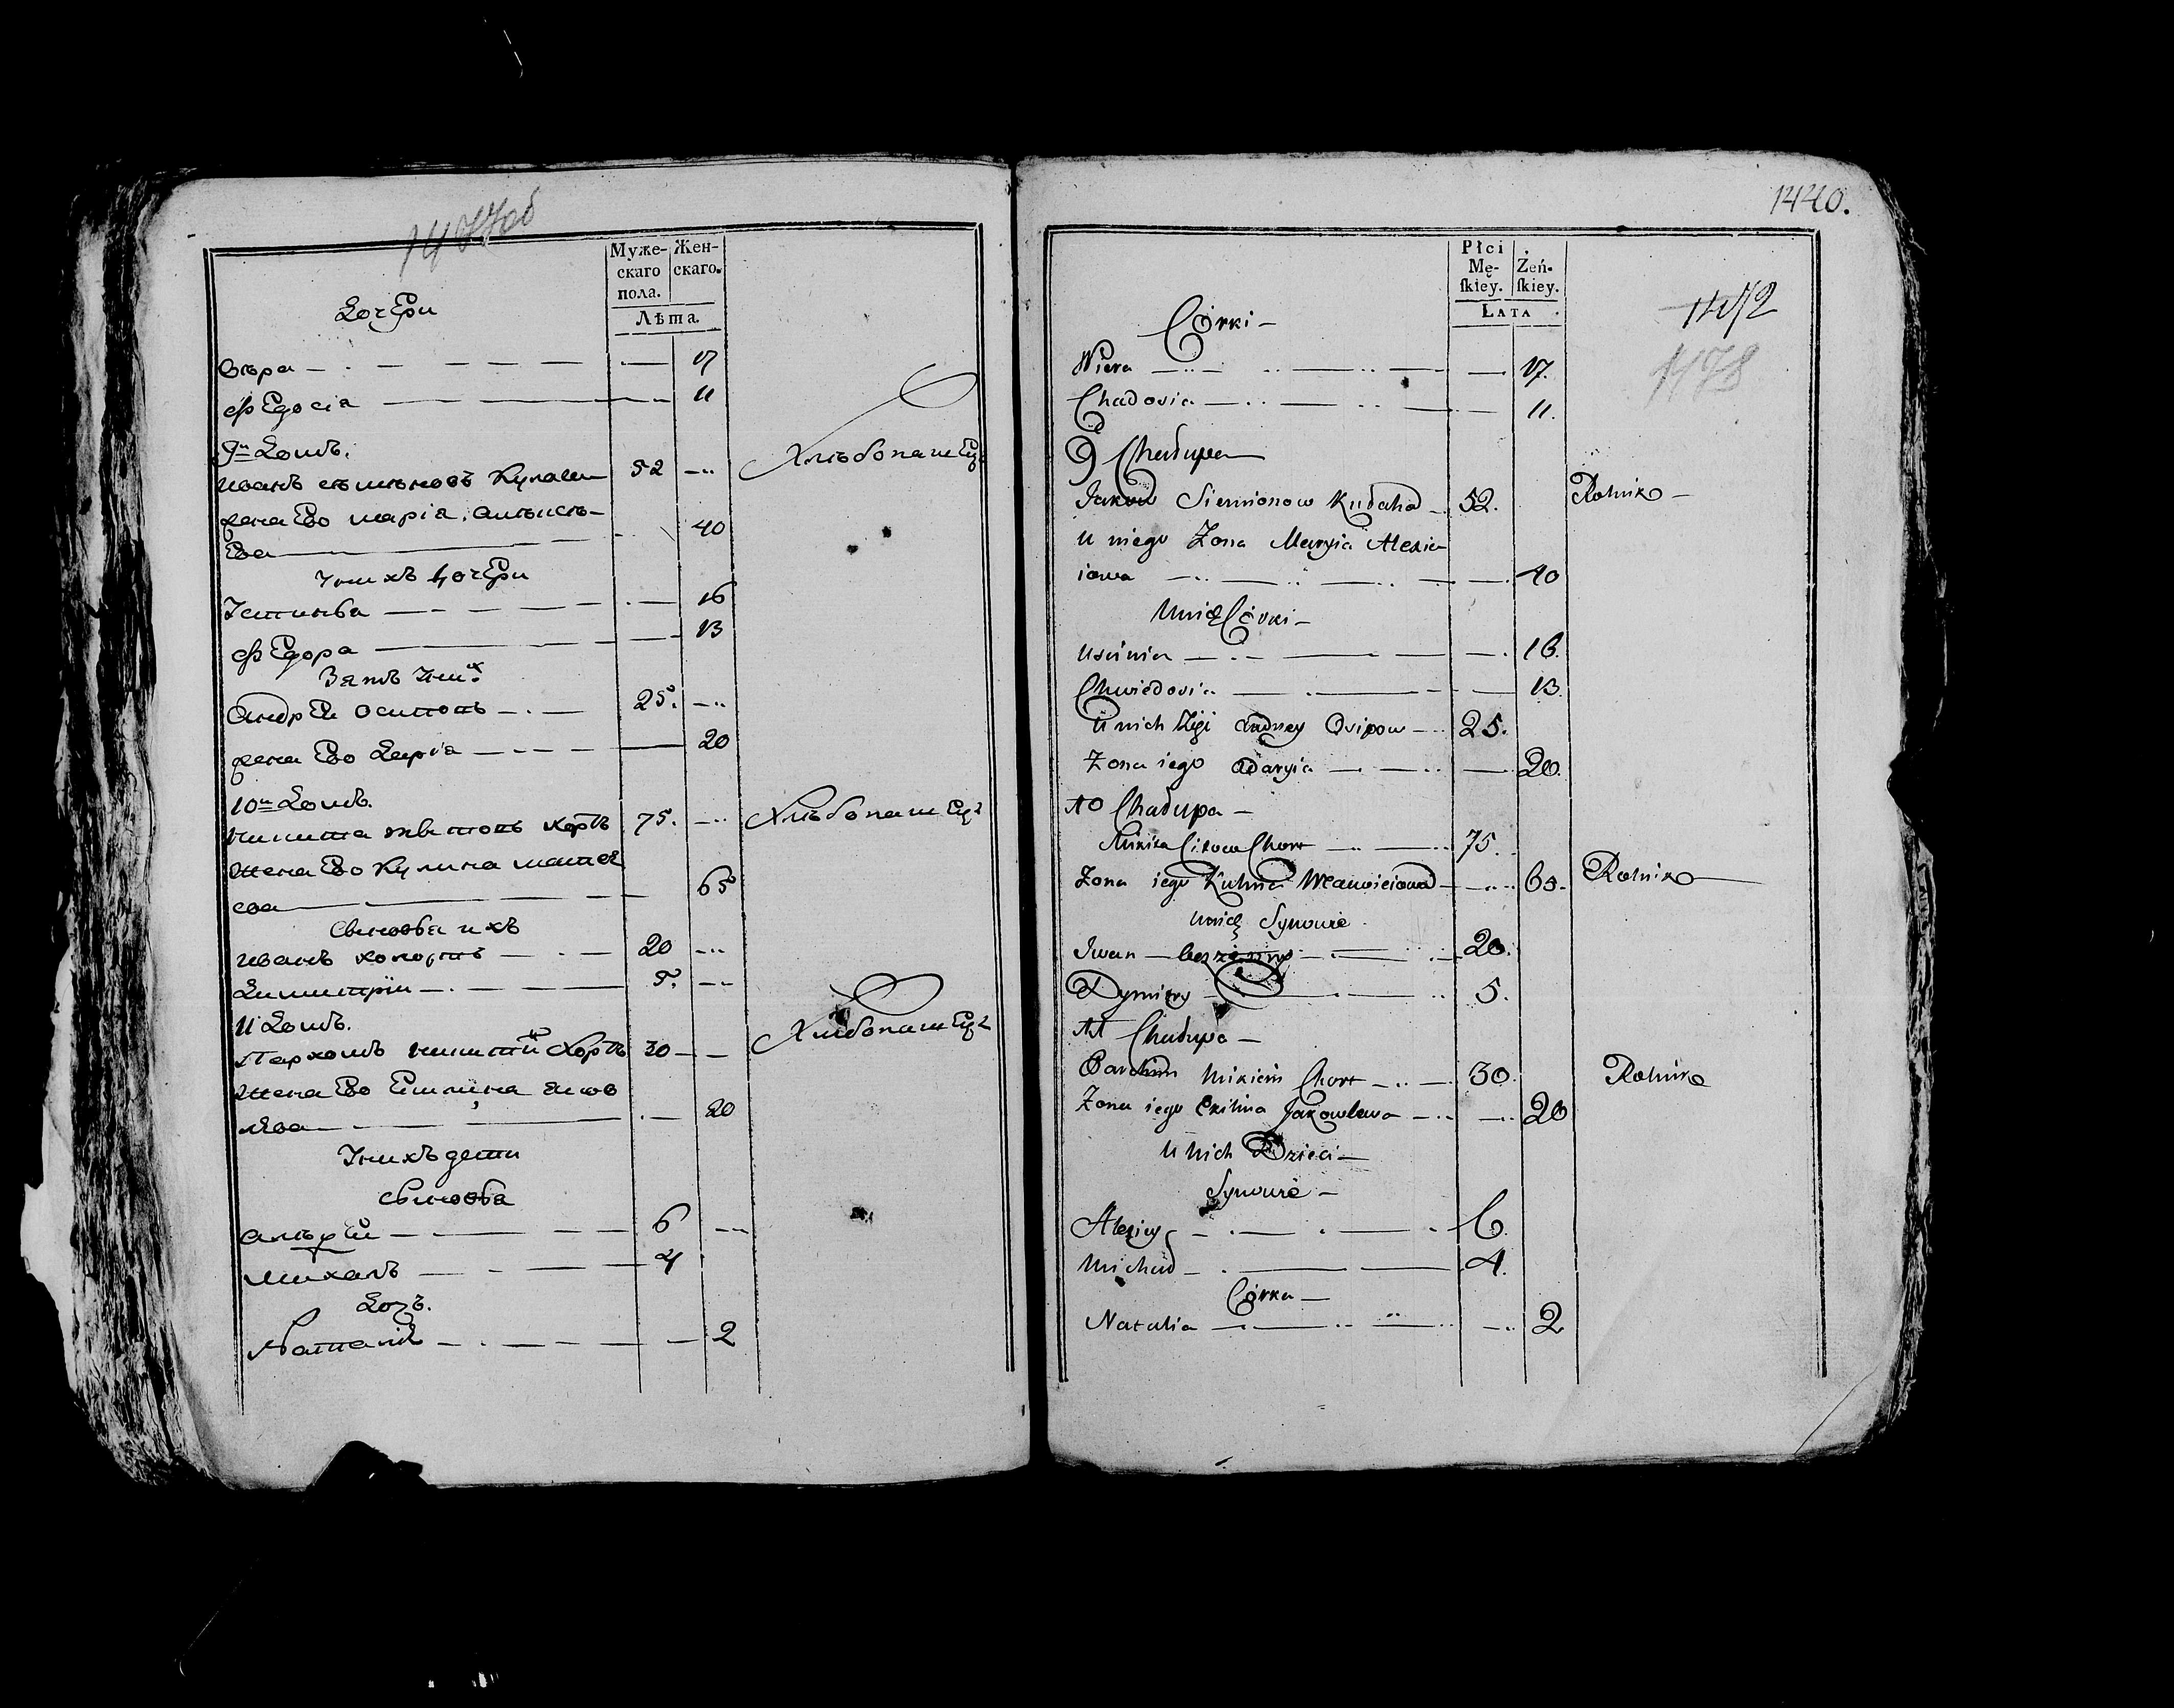 Муже-
скаго
пола.
Жен-
скаго.
Лѣта.
Дочери
Вѣра 17
Федосіа 11
9й Домъ.
Иванъ 52 Хлѣбопашец
жена Ево Маріа
Ева 40
У них дочери
Устинья 16
Федора 13
Зять У них
Андрей Осиповъ 25.
жена Ево Даріа 20
10й Домъ.
Никита Хортъ 75. Хлѣбопашец
жена Ево Кулина
ева 65
Сыновья ихъ
Иванъ холостъ 20
Димитрій 5.
11 Домъ.
Пархомъ Никитин Хортъ 30 Хлѣбопашец
жена Ево Яков
лева 20
У нихъ дети
сыновья
Алѣксей 6
Михалъ 4
Доч.
Наталія 2
1440.
Płci
Mę-
skiey.
Żeń-
skiey.
Łata
1472
1478
Córki
Wiera 17.
Chadosia 11.
9 Chałupa
Jakow Siemionow 52. Rolnik
u niego Żona Maryia Alexie
iowa 40
u nich Córki
Uścinia 16.
Chwiedosia 13.
u nich Zięć Andrey Osipow 25.
Żona iego Daryia 20.
10 Chałupa
Nikita Chort 75.
Żona iego Kulina 65. Rolnik
u nich Synowie
Iwan bezżenny 20.
Dymitry 5.
11 Chałupa
Parchim Nikicin Chort 30. Rolnik
Żona iego Jakowlewa 20
u nich Dzieci
Synowie
Alexiey 6.
Michał 4.
Córka
Natalia 2